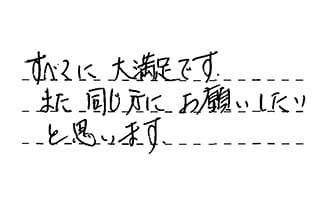 すべてに大満足です.
また同じ方にお願いしたい
と思います.